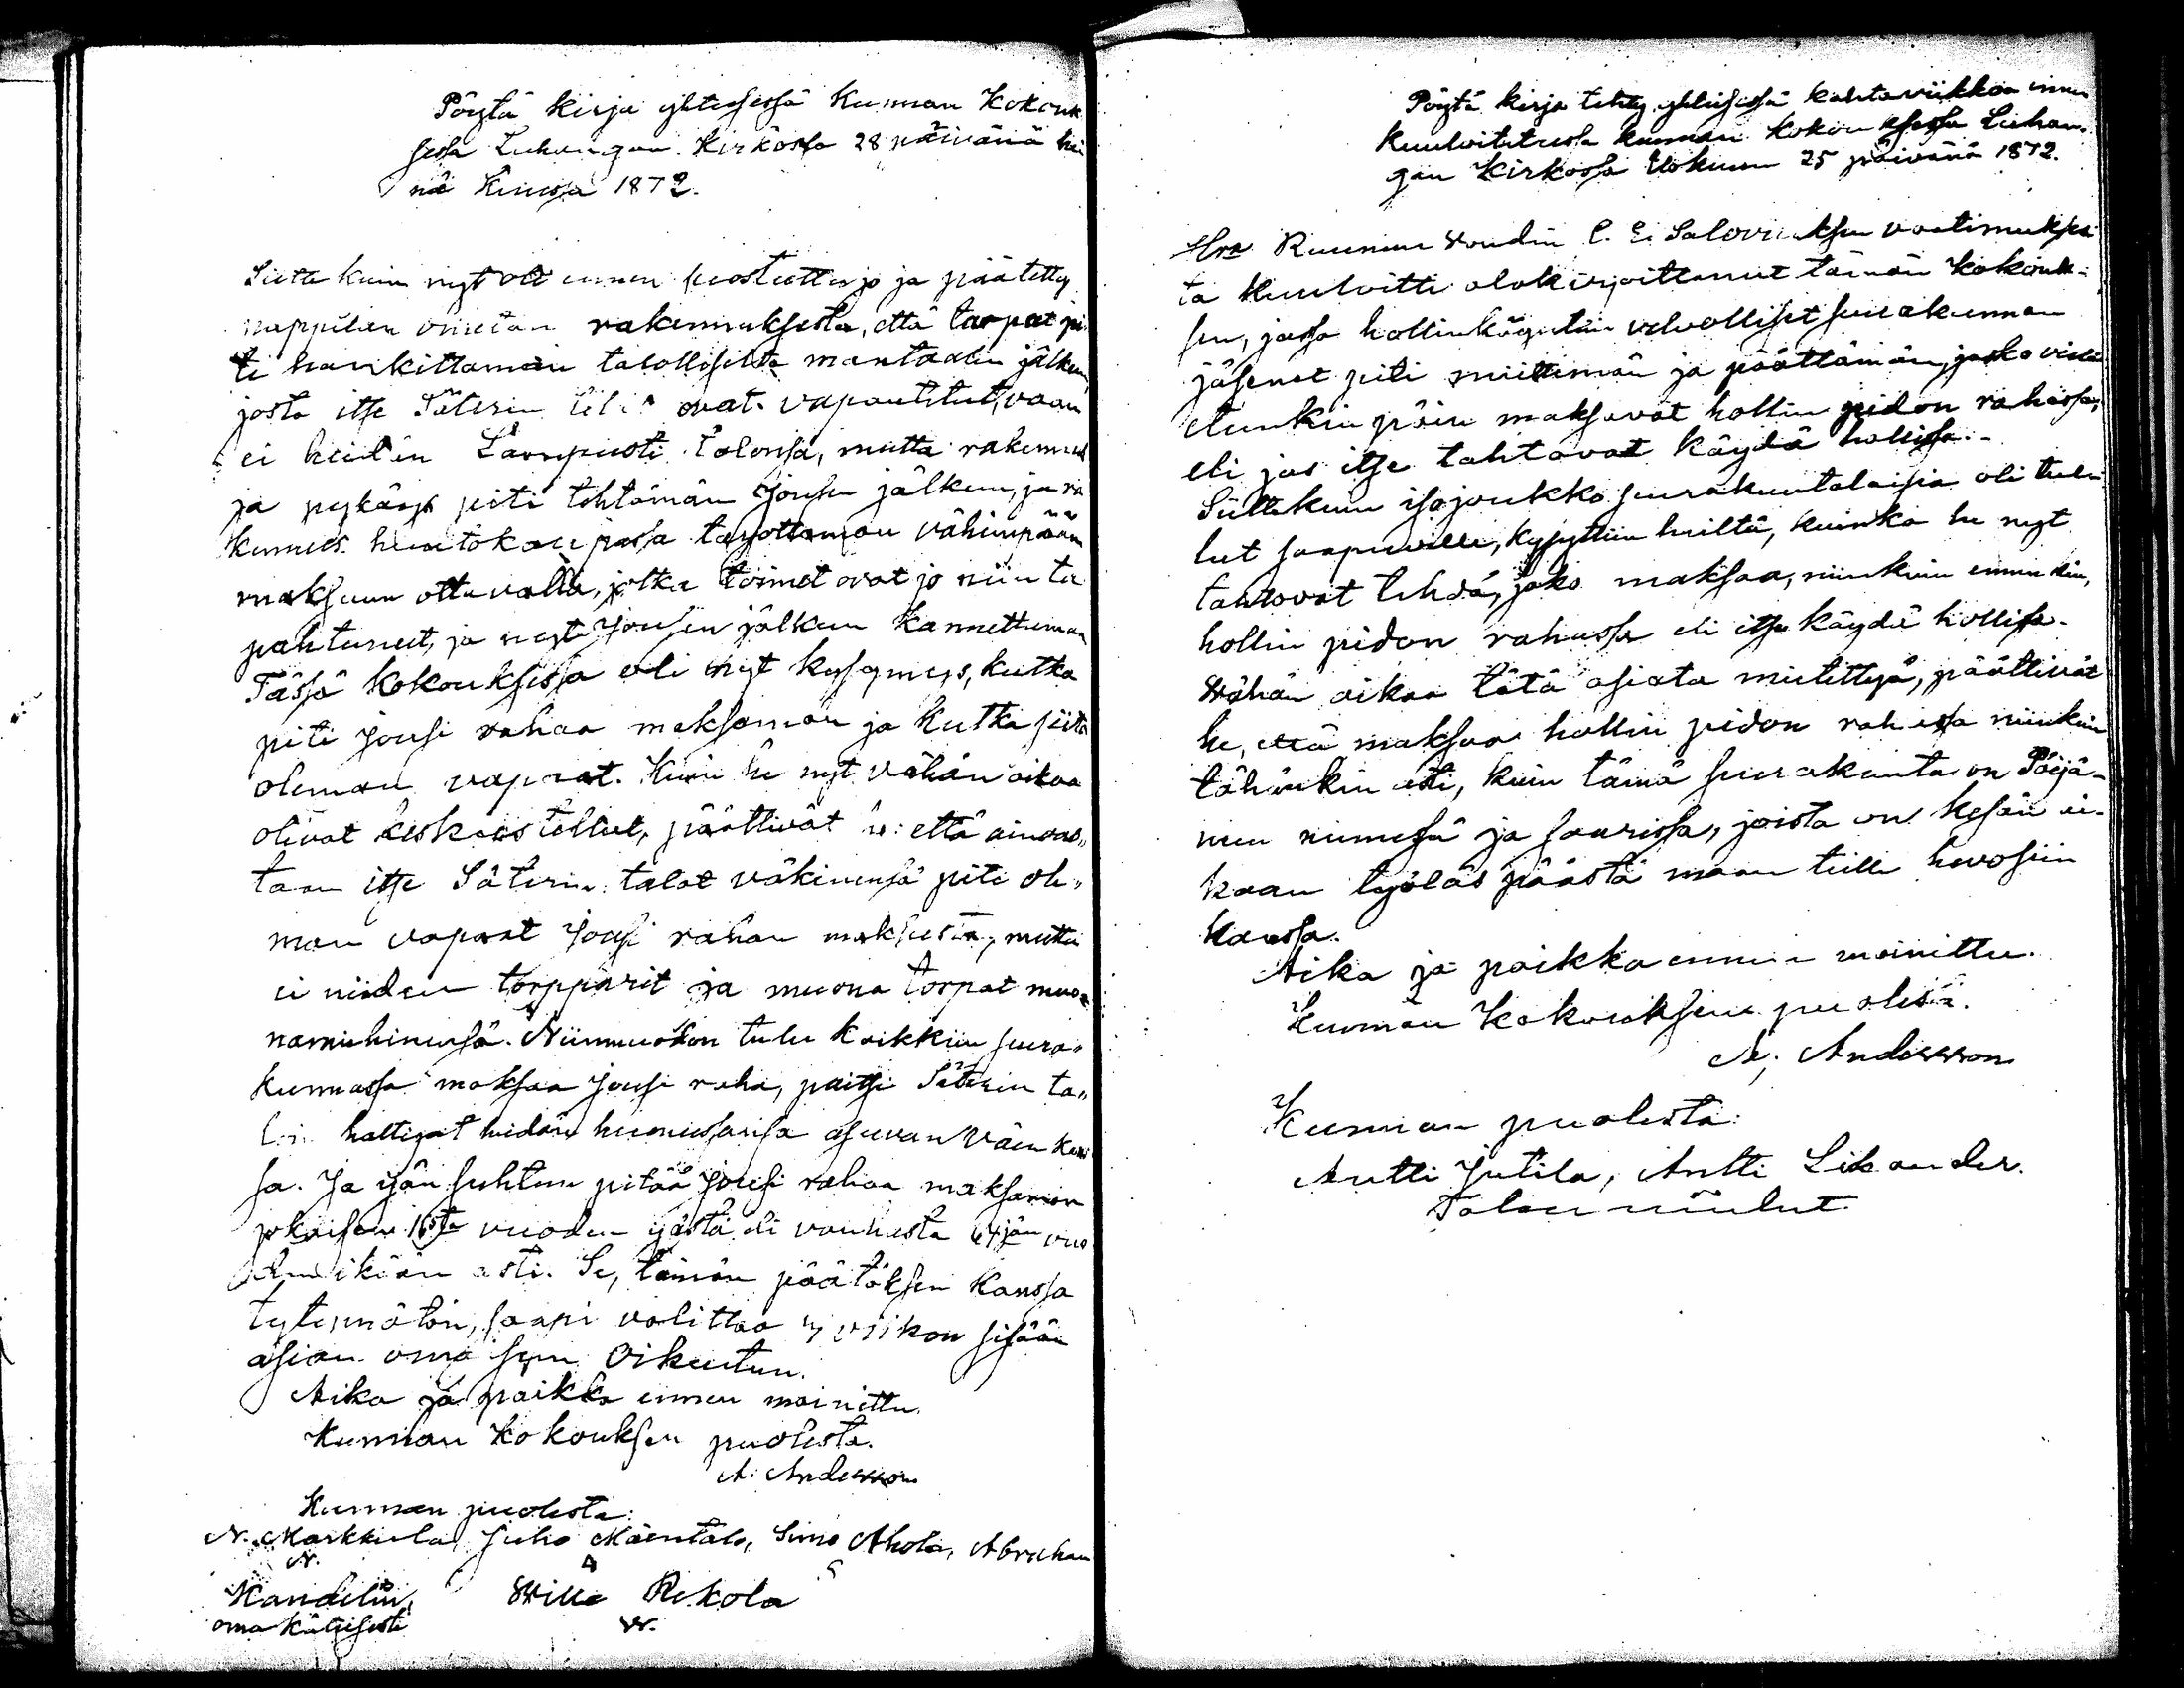 Pöytä kirja yhteisessä Kunnan Kokouk
sessa Luhangan Kirkossa 28 päivänä hei
nä Kuussa 1872.
Sitte kuin nyt oli ennen suostuttu jo ja päätetty
pappilan rakennuksesta, että tarpeet pi
ti hankittaman talollisilta mantaalin jälkeen,
josta itse Säterin ovat vapautetut, vaan
ei heidän Lamppuoti talonsa, mutta rakennus
ja pytkäys piti tehtämän Jousen jälkeen, ja ra
kennus huutokaupassa tarjottaman vähimpään
maksuun ottavalle, jotka toimet ovat jo niin ta
pahtuneet, ja nyt Jousen jälkeen kannettaman
Tässä Kokouksessa oli nyt kysymys, kutka
piti jousi rahaa maksaman ja kutka siitä
oleman vapaat. Kuin he nyt vähän aikaa
olivat keskustellut, päättivät he: että ainoas„
taan itse Säterin talot väkinensä piti ole„
man vapaat Jousi rahan maksusta, mutta
ei niiden torpparit ja muona torpat muo„
namiehinensä. Niinmuodon tulee kaikkiin seura„
kunnassa maksaa jousi raha, paitsi Säterin ta„
lon haltijat heidän huoneissansa asuvan väen kans
sa. Ja ijän suhteen pitää Jousi rahaa maksaman
jokaisen 16ta vuoden ijästä eli vanhasta 64jän vuo
den ikään asti. Se, tämän päätöksen kanssa
tytymätön, saapi valittaa 4 viikon sisään
asian omaseen Oikeuteen.
Aika ja paikka ennen mainittu.
Kunnan Kokouksen puolesta.
A. Andersson
Kunnan puolesta:
N. Markkula, Juho Mäentalo, Simo Ahola, Abraham
N.
Kandelin, Wille Rekola
oma kätisesti W.
Pöytä kirja tehty yhteisessä kahta viikkoa ennen
Kuuloitetussa kunnan kokouksessa Luhan„
gan Kirkossa Elokuun 25 päivänä 1872.
Hra Ruunun Voudin C. E. Saloviuksen vaatimukses
ta kuuloitti alakirjoittanut tämän Kokouk„
sen, jossa hollinkäyntiin velvolliset seurakunnan
jäsenet piti miettimän ja päättämän, josko vielä
etunkin päin maksavat hollin pidon rahassa,
eli jos itse tahtovat käydä hollissa.–
Sittekuin iso joukko seurakuntalaisia oli tul
lut saapuville, kysyttiin heiltä, kuinka he nyt
tahtovat tehdä, joko maksaa, niinkuin ennenkin,
hollin pidon rahassa eli itse käydä hollissa.
Vähän aikaa tätä asiata mietittyä, päättivät
he, että maksaa hollin pidon rahassa niinkuin
tähänkin asti, kuin tämä seurakunta on Päijä-
nen niemessä ja saarissa, joista on kesän ai-
kaan työläs päästä maan teille hevosiin
kanssa.
Aika ja paikka ennen mainittu.
Kunnan Kokouksen puolesta.
A. Andersson
Kunnan puolesta:
Antti Jutila, Antti Sikander.
Talon miehet.